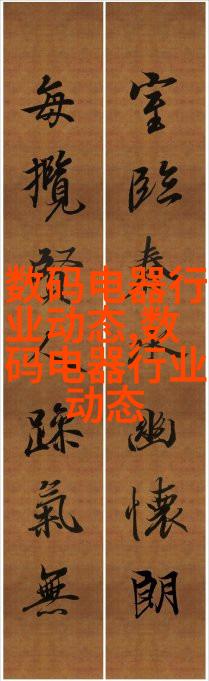 室臨春幽懷朗
每攬賢躁氣無
数码电器行
业动态,数
码电器行业
动态